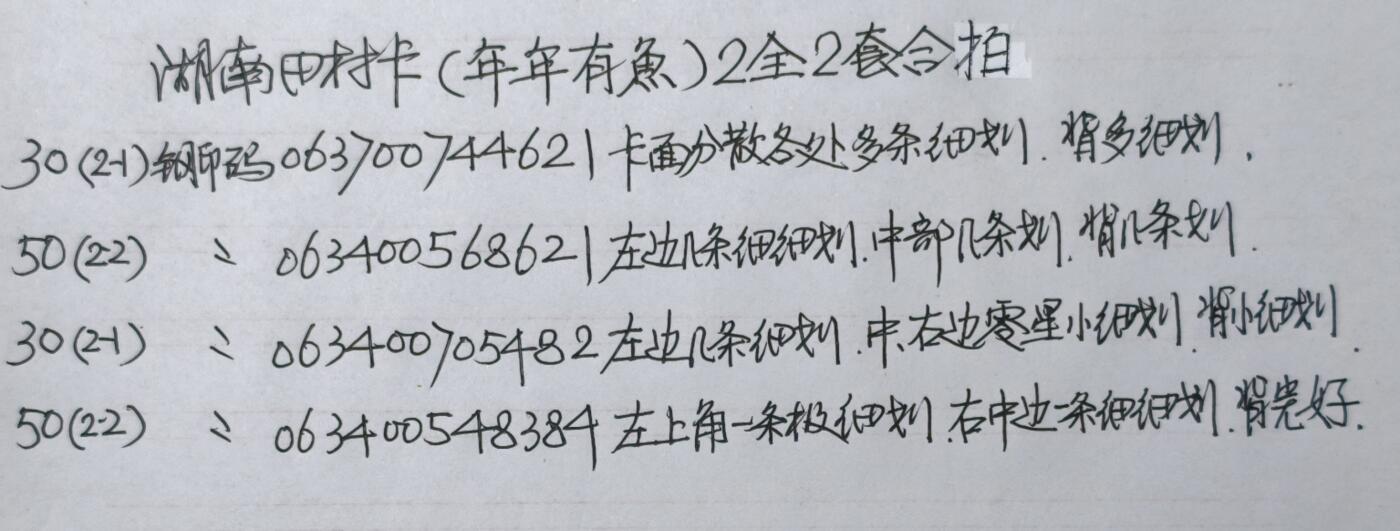 湖南田村卡(年年有魚)2全2套合拍
30(2-1)钢印码063700744621卡面分散各处多条细划.背多细划.
50(2-2) 〻 063400568621左边几条细细划.中部几条划.背几条划.
30(2-1) 〻 063400705482左边几条细划.中、右边零星小细划.背小细划.
50(2-2) 〻 063400548384左上角一条极细划.右中边一条细细划.背完好.